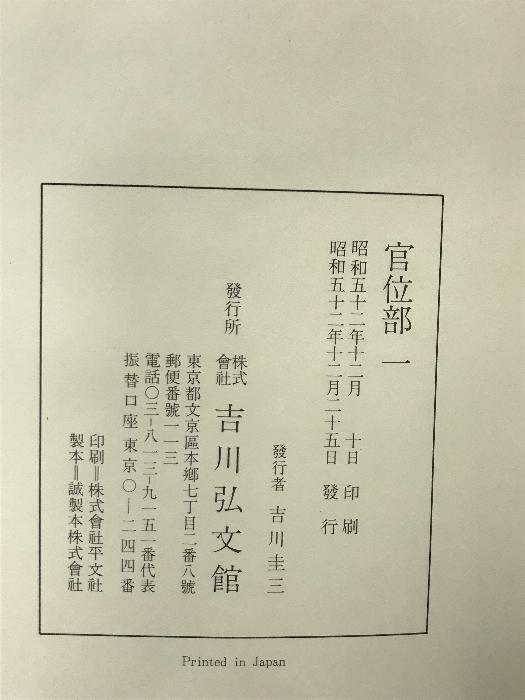 官位部一
昭和五十二年十二月　十日　印刷
昭和五十二年十二月二十五日　發行
發行者　吉川圭三
發行所　株式會社　吉川弘文館
東京都文京區本鄉七丁目二番八號
郵便番號一一三
電話〇三－八一三－九一五一番代表
振替口座東京〇－二四四番
印刷＝株式會社平文社
製本＝誠製本株式會社
Printed in Japan